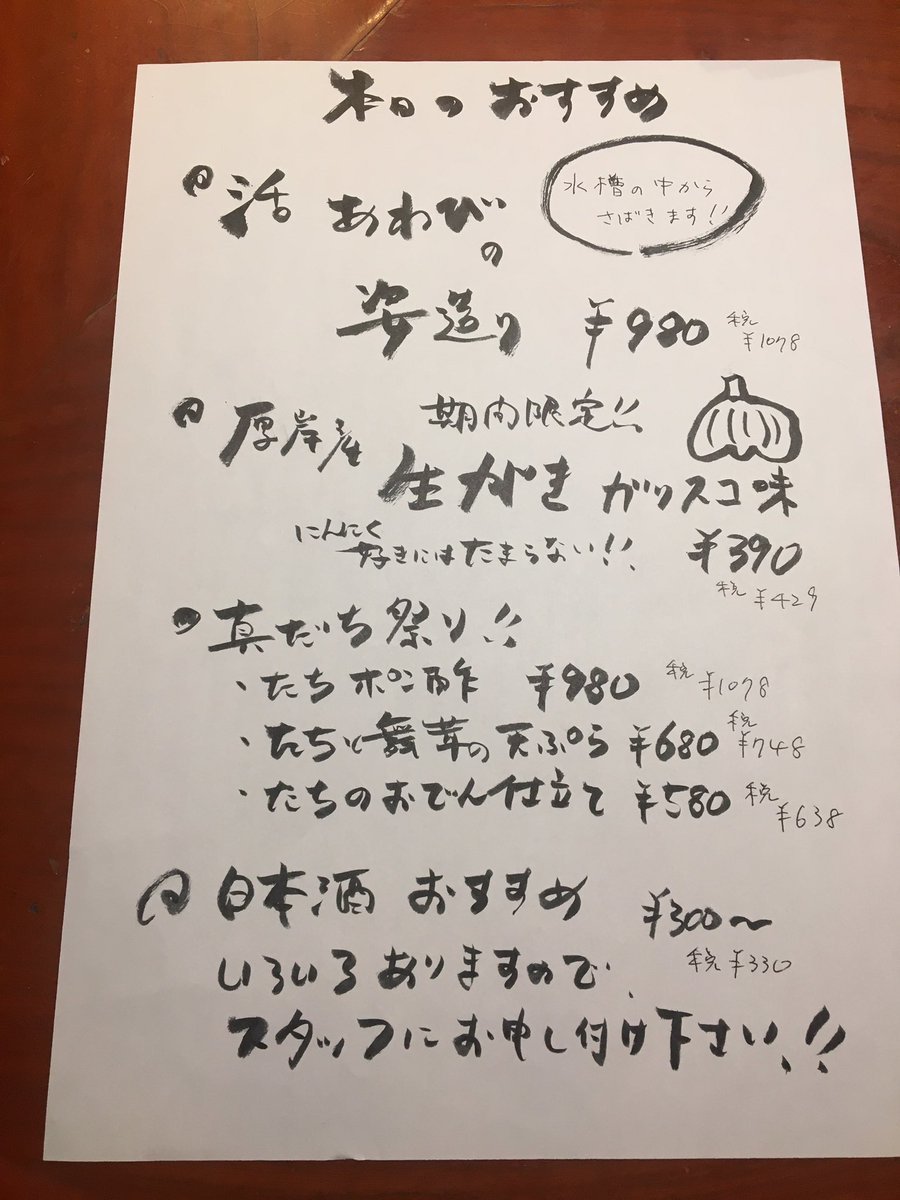 本日のおすすめ
活 あわび
の
姿造り ¥980 税 ¥1078
水槽の中から
さばきます!!
厚岸産 期内限定!!
生がき ガリスコ味
にんにく
好きにはたまらない!! ¥390
税 ¥429
真だち祭り!!
・たちポン酢 ¥980 税 ¥1078
・たちと舞茸の天ぷら ¥680 税 ¥748
・たちのおでん仕立て ¥580 税 ¥638
日本酒 おすすめ ¥300〜
税 ¥330
いろいろありますので、
スタッフにお申し付け下さい!!